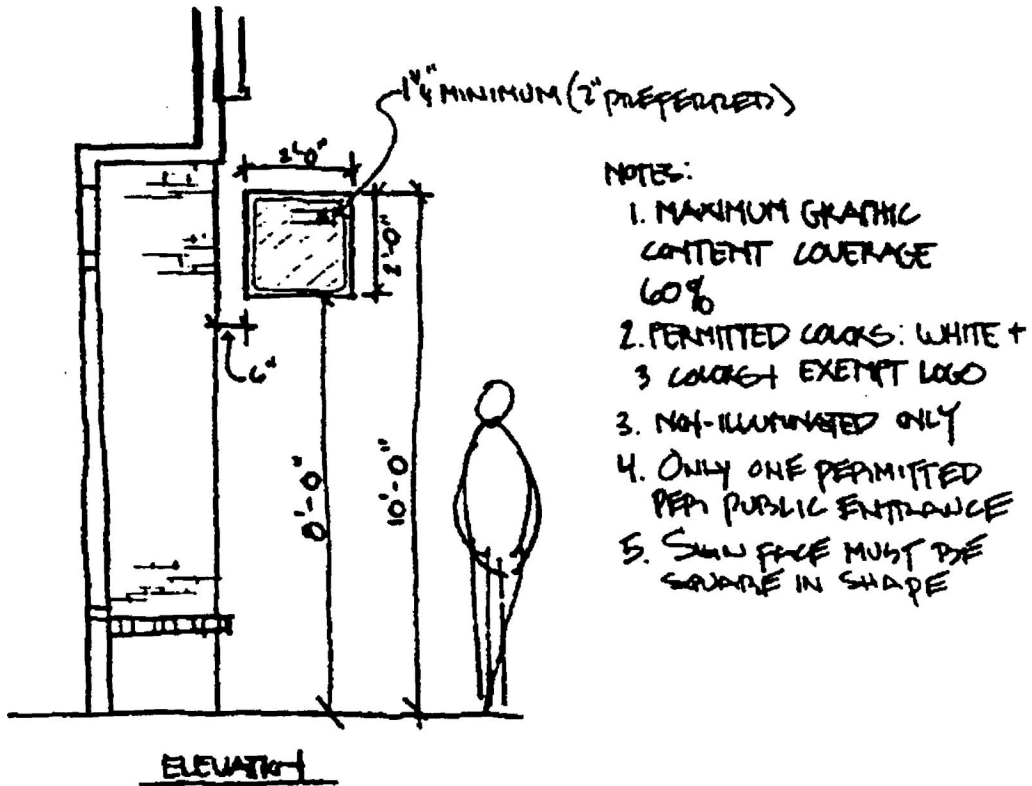 1 1/4" MINIMUM (2" PREFERRED)
2'-0"
2'-0"
6"
8'-0"
10'-0"
ELEVATION
NOTES:
1. MAXIMUM GRAPHIC
CONTENT COVERAGE
60%
2. PERMITTED COLORS: WHITE +
3 COLORS + EXEMPT LOGO
3. NON-ILLUMINATED ONLY
4. ONLY ONE PERMITTED
PER PUBLIC ENTRANCE
5. SIGN FACE MUST BE
SQUARE IN SHAPE